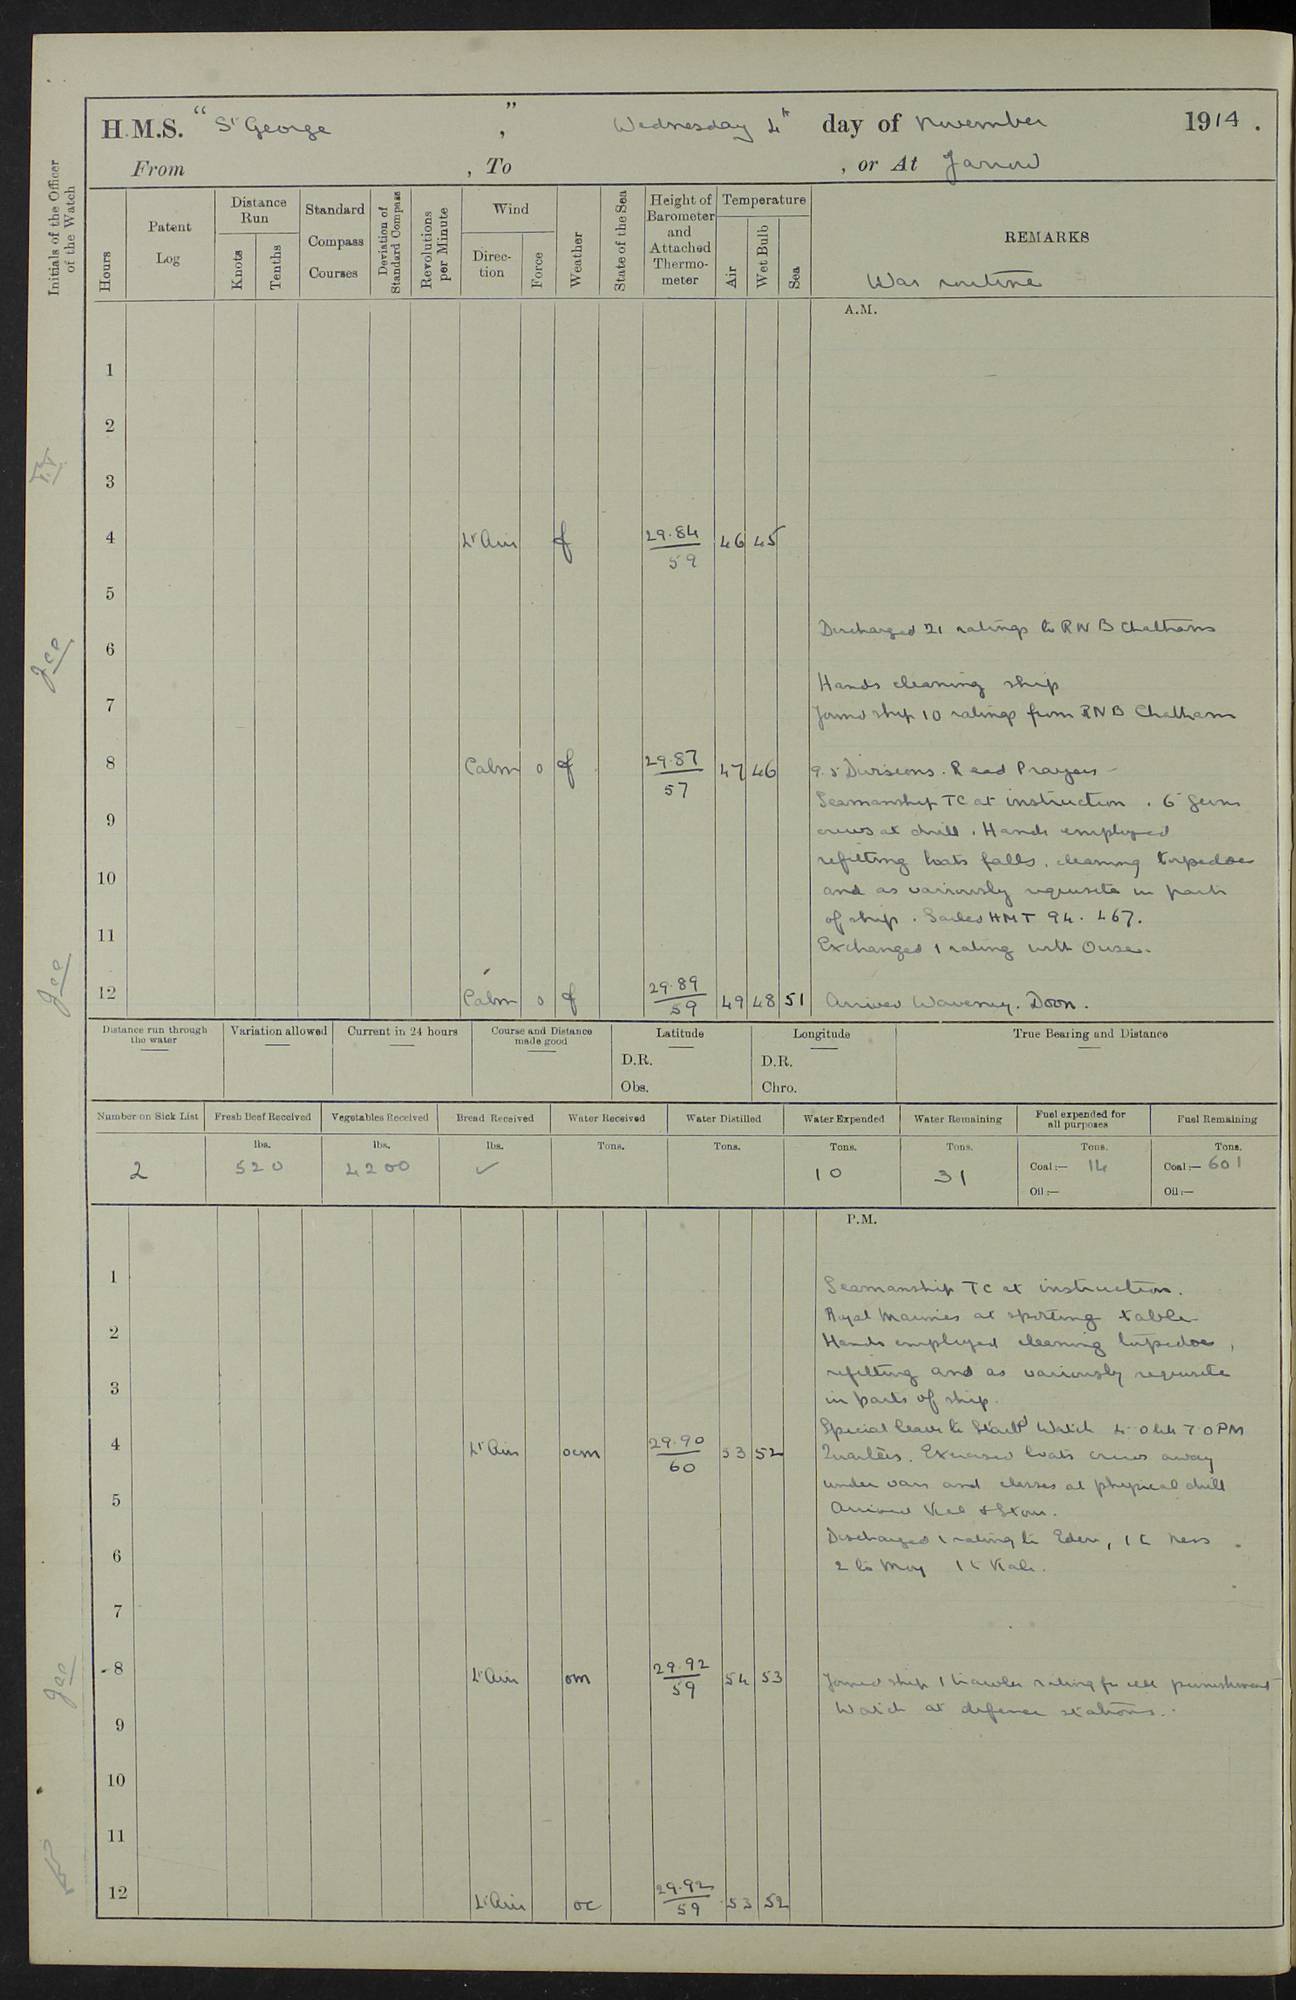 H.M.S. "St George", Wednesday 4th day of November 1914.
From , To , or At Jarrow
Initials of the Officer of the Watch
Hours
Patent Log
Distance Run
Knots
Tenths
Standard Compass Courses
Deviation of Standard Compass
Revolutions per Minute
Wind
Direction
Force
Weather
State of the Sea
Height of Barometer and Attached Thermometer
Temperature
Air
Wet Bulb
Sea
REMARKS
War routine
A.M.
1
2
3
4 Lt Airs f 29.84 59 46 45
5
Discharged 21 ratings to RNB Chatham
6
Hands cleaning ship
7
Joined ship 10 ratings from RNB Chatham
8 Calm 0 f 29.87 57 47 46 9.5 Divisions. Read Prayers
Seamanship TC at instruction. 6" guns
9
crews at drill. Hands employed
refitting boats falls, cleaning torpedoes
10
and as variously requisite in parts
of ship. Sailed HMT 94. 467.
11
Exchanged 1 rating with Ouse.
12 Calm 0 f 29.89 59 49 48 51 Arrived Waveney. Doon.
Distance run through the water
Variation allowed
Current in 24 hours
Course and Distance made good
Latitude
D.R.
Obs.
Longitude
D.R.
Chro.
True Bearing and Distance
Number on Sick List
Fresh Beef Received
Vegetables Received
Bread Received
Water Received
Water Distilled
Water Expended
Water Remaining
Fuel expended for all purposes
Fuel Remaining
lbs. lbs. lbs. Tons. Tons. Tons. Tons. Tons. Tons.
2 520 4200 ✓ 10 31 Coal:— 14 Coal:— 601
Oil:— Oil:—
P.M.
1
Seamanship TC at instruction.
Royal Marines at spotting table
2
Hands employed cleaning torpedoes,
refitting and as variously requisite
3
in parts of ship.
Special leave to Starbd Watch 4.0 till 7.0 PM
4 Lt Airs ocm 29.90 60 53 52 Quarters. Exercised boats crews away
under oars and classes at physical drill
5
Arrived &
Discharged 1 rating to Eden, 1 to Ness
6
2 to Moy 1 to Kale.
7
8 Lt Airs om 29.92 59 54 53 Joined ship 1 trawler rating for cell punishment
Watch at defence stations.
9
10
11
12 Lt Airs oc 29.92 59 53 52